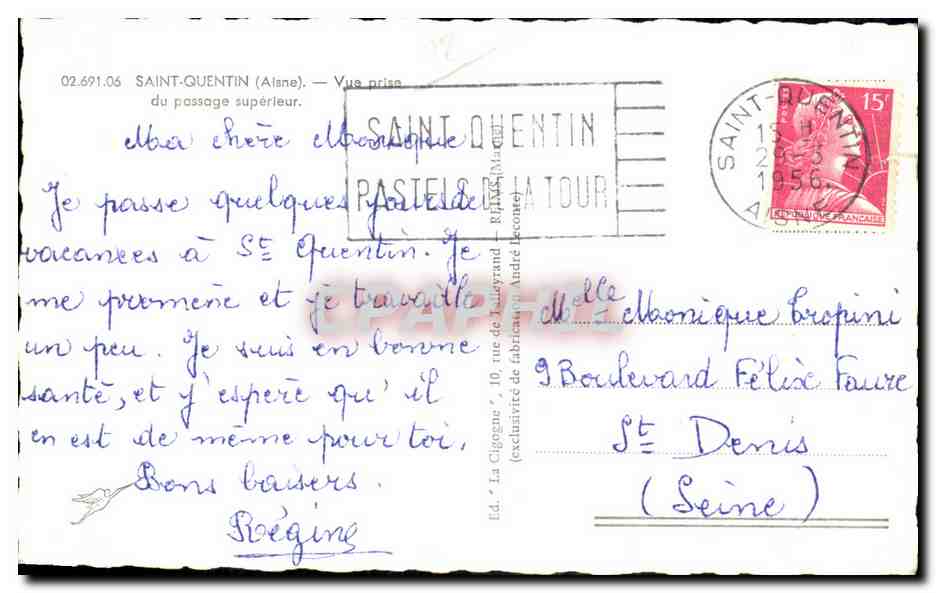 02.691.06 SAINT-QUENTIN (Aisne). — Vue prise
du passage supérieur.
Ma chère Monique
Je passe quelques jours de
vacances à St Quentin. Je
me promène et je travaille
un peu. Je suis en bonne
santé, et j'espère qu'il
en est de même pour toi.
Bons baisers.
Régine
SAINT QUENTIN
PASTELS DE LA TOUR
Ed. "La Cigogne", 10, rue de Talleyrand — REIMS (Marne)
(exclusivité de fabrication André Leconte)
SAINT-QUENTIN
15 H
1956
AISNE
15F
REPUBLIQUE FRANCAISE
Melle Monique Tropini
9 Boulevard Félix Faure
St Denis
(Seine)